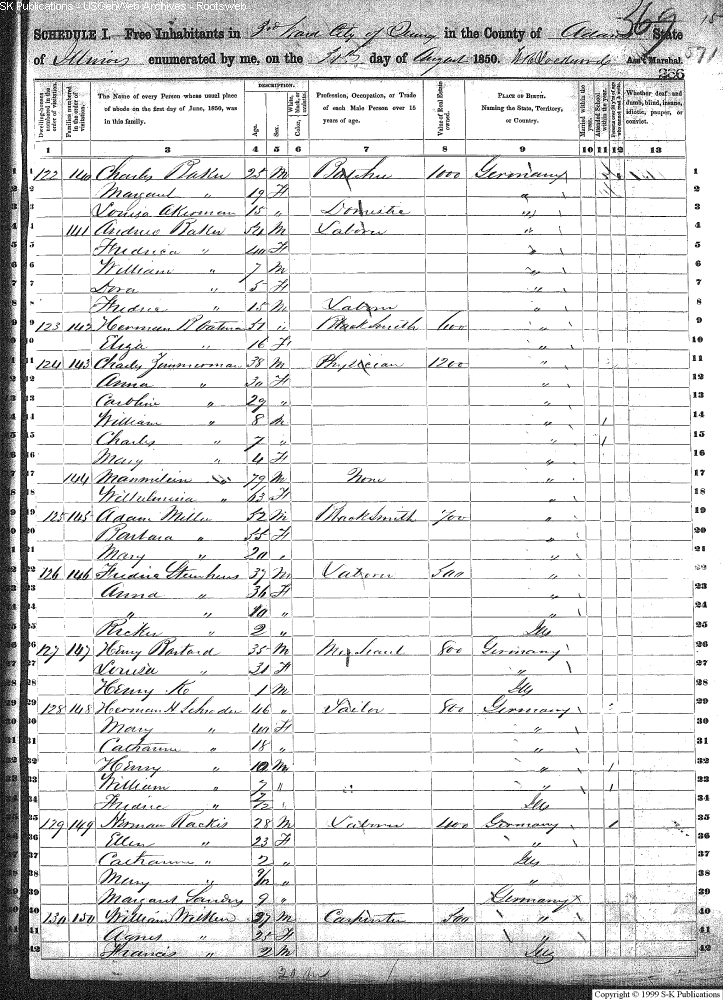 SK Publications - USGenWeb Archives - Rootsweb
369
SCHEDULE I. Free Inhabitants in 3rd Ward City of Quincy in the County of Adams State
of Illinois enumerated by me, on the 1st day of August 1850. Ass't Marshal.
571
286
Dwelling-houses numbered in the order of visitation.
Families numbered in the order of visitation.
The Name of every Person whose usual place of abode on the first day of June, 1850, was in this family.
DESCRIPTION.
Age.
Sex.
White, black, or mulatto.
Color,
Profession, Occupation, or Trade of each Male Person over 15 years of age.
Value of Real Estate owned.
PLACE OF BIRTH. Naming the State, Territory, or Country.
Married within the year.
Attended School within the year.
Persons over 20 y'rs of age who cannot read & write.
Whether deaf and dumb, blind, insane, idiotic, pauper, or convict.
1 2 3 4 5 6 7 8 9 10 11 12 13
1 122 140 Charles Baker 25 M Butcher 1000 Germany 1
2 Margaret " 19 F " 2
3 Louisa Akerman 15 " Domestic " 3
4 141 Andrew Baker 54 M Laborer " 4
5 Fredrica " 40 F " 5
6 William " 7 M " 6
7 Dora " 5 F " 7
8 Fredric " 15 M Laborer " 8
9 123 142 Herman 51 Blacksmith 600 " 9
10 Eliza " 16 F " 10
11 124 143 Charles Zimmerman 38 M Physician 1200 " 11
12 Anna " 30 F " 12
13 Caroline " 29 " " 13
14 William " 8 M " 1 14
15 Charles " 7 " " 1 15
16 Mary " 4 F " 16
17 144 " 79 M None " 17
18 Wilhelmina " 63 F " 18
19 125 145 Adam Miller 52 M Blacksmith 700 " 19
20 Barbara " 55 F " 20
21 Mary " 20 " " 21
22 126 146 Fredric 37 M Laborer 500 " 22
23 Anna " 36 F " 23
24 " " 10 " " 24
25 " 2 " Ills 25
26 127 147 Henry 35 M Merchant 800 Germany 26
27 Louisa " 31 F " 27
28 Henry K 1 M Ills 28
29 128 148 Herman H Schrader 46 " Tailor 800 Germany 29
30 Mary " 40 F " 30
31 Catharine " 18 " " 31
32 Henry " 12 M " 1 32
33 William " 7 " " 1 33
34 Fredric " 7/12 Ills 34
35 129 149 Herman Rackis 28 M Laborer 400 Germany 1 35
36 Ellen " 23 F " 36
37 Catharine " 2 " Ills 37
38 Mary " 9/12 " " 38
39 Margaret 9 " Germany 39
40 130 150 William 27 M Carpenter 500 " 40
41 Agnes " 25 F " 41
42 Francis " 2 M Ills 42
Copyright © 1999 S-K Publications